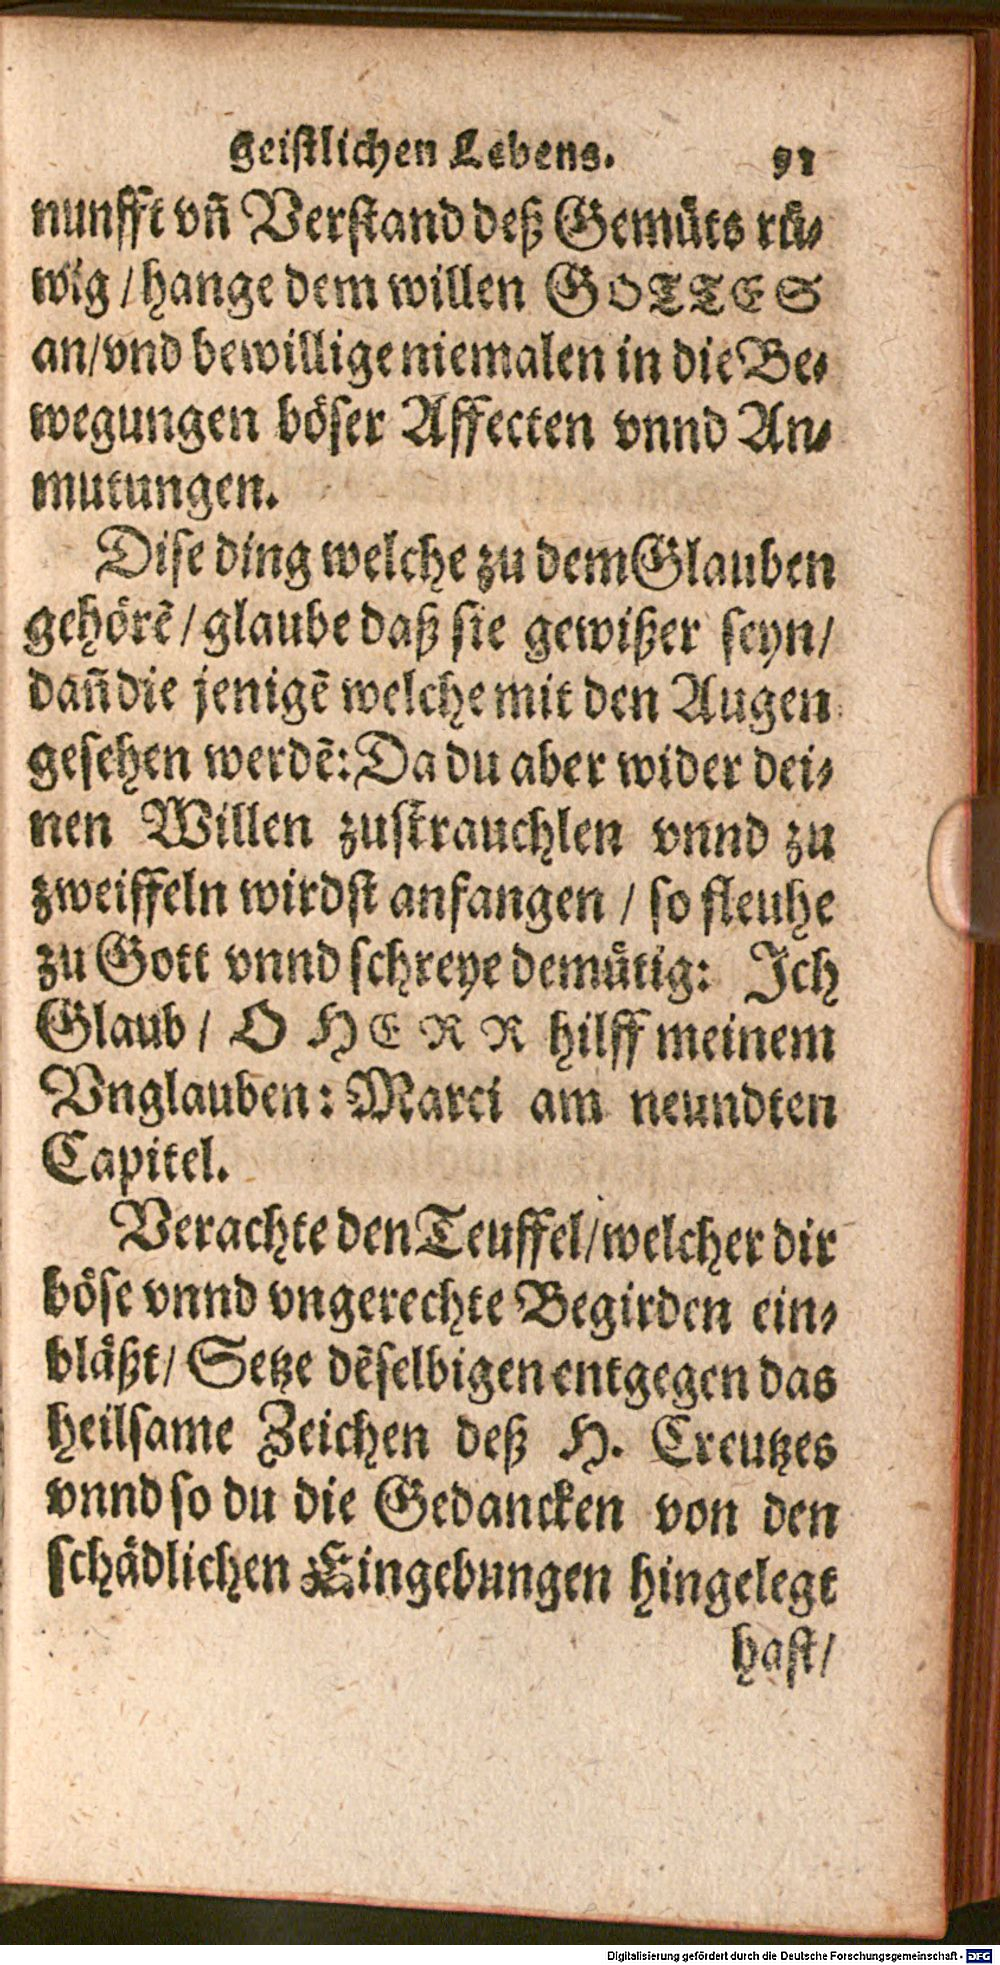 geistlichen Lebens. 91
nunfft vñ Verstand deß Gemüts rü-
wig / hange dem willen GOTTES
an/vnd bewillige niemalen in die Be-
wegungen böser Affecten vnnd An-
mutungen.
Dise ding welche zu dem Glauben
gehörẽ / glaube daß sie gewißer seyn/
dañ die jenigẽ welche mit den Augen
gesehen werdẽ: Da du aber wider dei-
nen Willen zustrauchlen vnnd zu
zweiffeln wirdst anfangen / so fleuhe
zu Gott vnnd schreye demütig: Ich
Glaub / O HERR hilff meinem
Vnglauben: Marci am neundten
Capitel.
Verachte den Teuffel/welcher dir
böse vnnd vngerechte Begirden ein-
bläßt/ Setze dẽselbigen entgegen das
heilsame Zeichen deß H. Creutzes
vnnd so du die Gedancken von den
schädlichen Eingebungen hingelegt
hast/
Digitalisierung gefördert durch die Deutsche Forschungsgemeinschaft - DFG